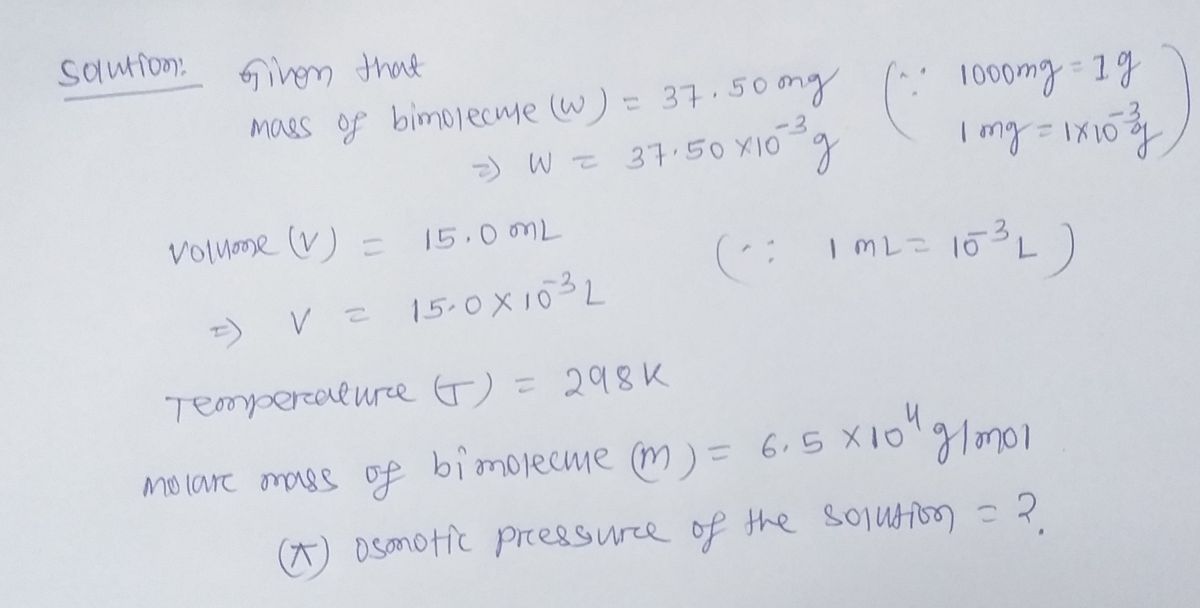 Solution: Given that
mass of bimolecule (W) = 37.50 mg (∵ 1000mg = 1g
⇒ W = 37.50 × 10⁻³ g 1 mg = 1×10⁻³g)
Volume (V) = 15.0 mL
(∵ 1 mL = 10⁻³ L)
⇒ V = 15.0 × 10⁻³ L
Temperature (T) = 298K
Molar mass of bimolecule (m) = 6.5 × 10⁴ g/mol
(π) osmotic pressure of the solution = ?